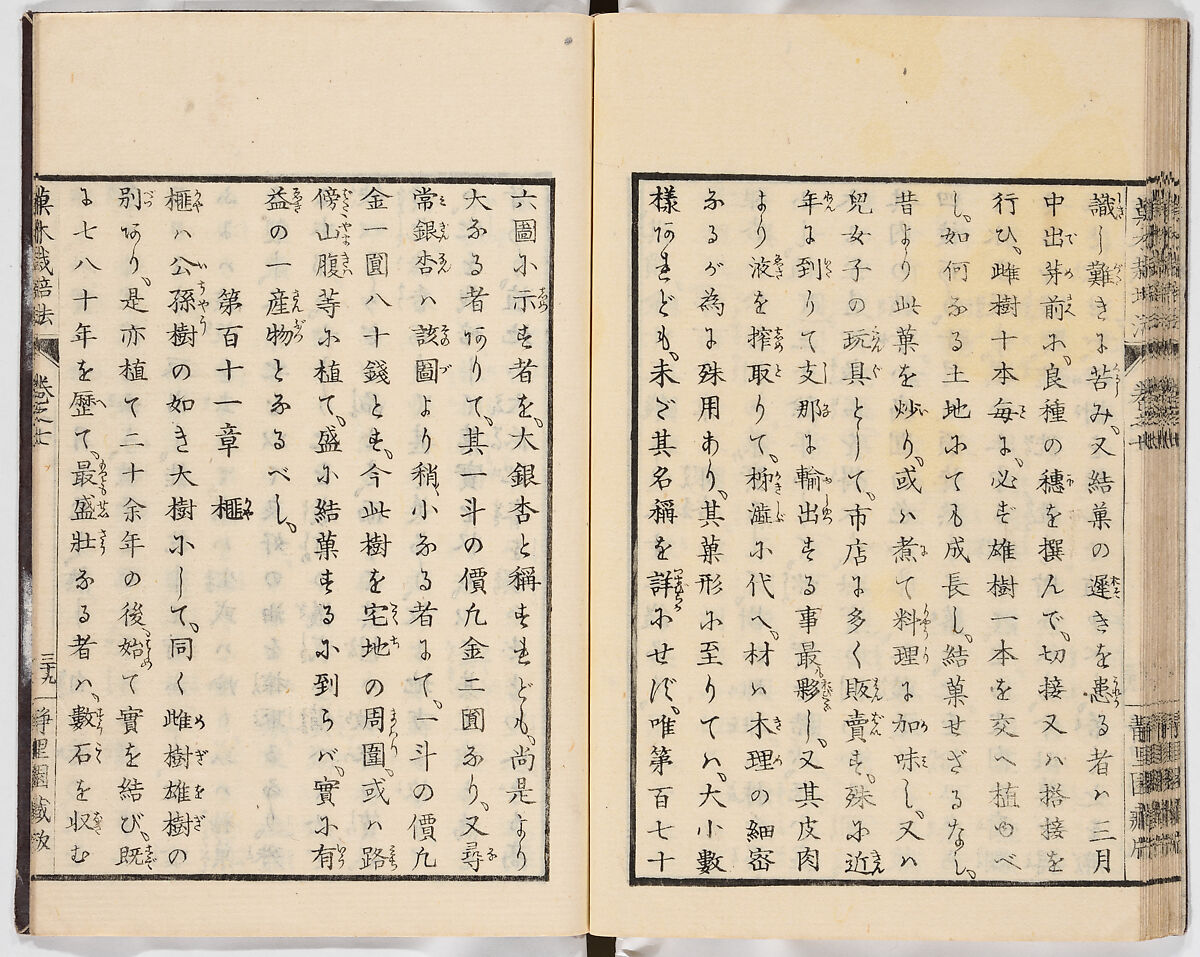 識し難きに苦み、又結菓の遲きを患る者ハ三月
中出芽前に、良種の穗を撰んで、切接又ハ搭接を
行ひ、雌樹十本毎に、必ず雄樹一本を交へ植ゆべ
し、如何なる土地にても成長し、結菓せざるなし、
昔より此菓を炒り、或ハ煮て料理に加味し、又ハ
兒女子の玩具として、市店に多く販賣す、殊に近
年に到りて支那に輸出する事最夥し、又其皮肉
より液を搾取りて、柹澁に代へ、材ハ木理の細密
なるが為に殊用あり、其菓形に至りてハ、大小數
樣あれども、未だ其名稱を詳にせず、唯第百七十
六圖に示す者を、大銀杏と稱すれども、尚是より
大なる者ありて、其一斗の價凡金二圓なり、又尋
常銀杏ハ該圖より稍、小なる者にて、一斗の價凡
金一圓八十錢とす、今此樹を宅地の周圍、或ハ路
傍山腹等に植て、盛に結菓するに到らバ、實に有
益の一産物となるべし、
第百十一章　榧
榧ハ公孫樹の如き大樹にして、同く雌樹雄樹の
別あり、是亦植て二十余年の後、始て實を結び、既
に七八十年を歷て、最盛壯なる者ハ、數石を収む
菓木栽培法　卷之七　三十九　静里園藏放